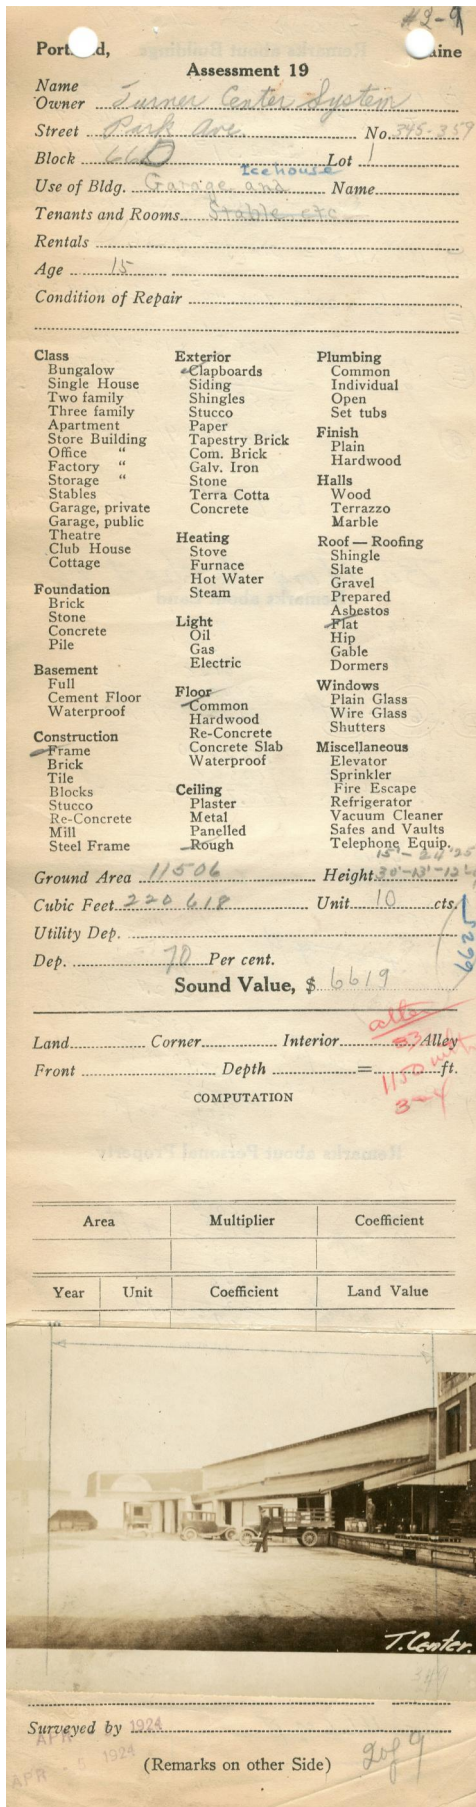 #2-9
Portland, Maine
Assessment 19
Name
Owner Turner Center System
Street Park Ave. No. 345-359
Block 66D Lot 1
Icehouse
Use of Bldg. Garage and Name
Tenants and Rooms Stable etc
Rentals
Age 15
Condition of Repair
Class
Bungalow
Single House
Two family
Three family
Apartment
Store Building
Office "
Factory "
Storage "
Stables
Garage, private
Garage, public
Theatre
Club House
Cottage
Foundation
Brick
Stone
Concrete
Pile
Basement
Full
Cement Floor
Waterproof
Construction
Frame
Brick
Tile
Blocks
Stucco
Re-Concrete
Mill
Steel Frame
Exterior
Clapboards
Siding
Shingles
Stucco
Paper
Tapestry Brick
Com. Brick
Galv. Iron
Stone
Terra Cotta
Concrete
Heating
Stove
Furnace
Hot Water
Steam
Light
Oil
Gas
Electric
Floor
Common
Hardwood
Re-Concrete
Concrete Slab
Waterproof
Ceiling
Plaster
Metal
Panelled
Rough
Plumbing
Common
Individual
Open
Set tubs
Finish
Plain
Hardwood
Halls
Wood
Terrazzo
Marble
Roof — Roofing
Shingle
Slate
Gravel
Prepared
Asbestos
Flat
Hip
Gable
Dormers
Windows
Plain Glass
Wire Glass
Shutters
Miscellaneous
Elevator
Sprinkler
Fire Escape
Refrigerator
Vacuum Cleaner
Safes and Vaults
Telephone Equip.
Ground Area 11506 Height
Cubic Feet 220618 Unit 10 cts.
6625
Utility Dep.
Dep. 70 Per cent.
Sound Value, $ 6619
Land Corner Interior Alley
Front Depth = ft.
1150
3-4
COMPUTATION
Area Multiplier Coefficient
Year Unit Coefficient Land Value
T. Center.
Surveyed by
APR 1924
(Remarks on other Side)
APR 5 1924
2 of 9